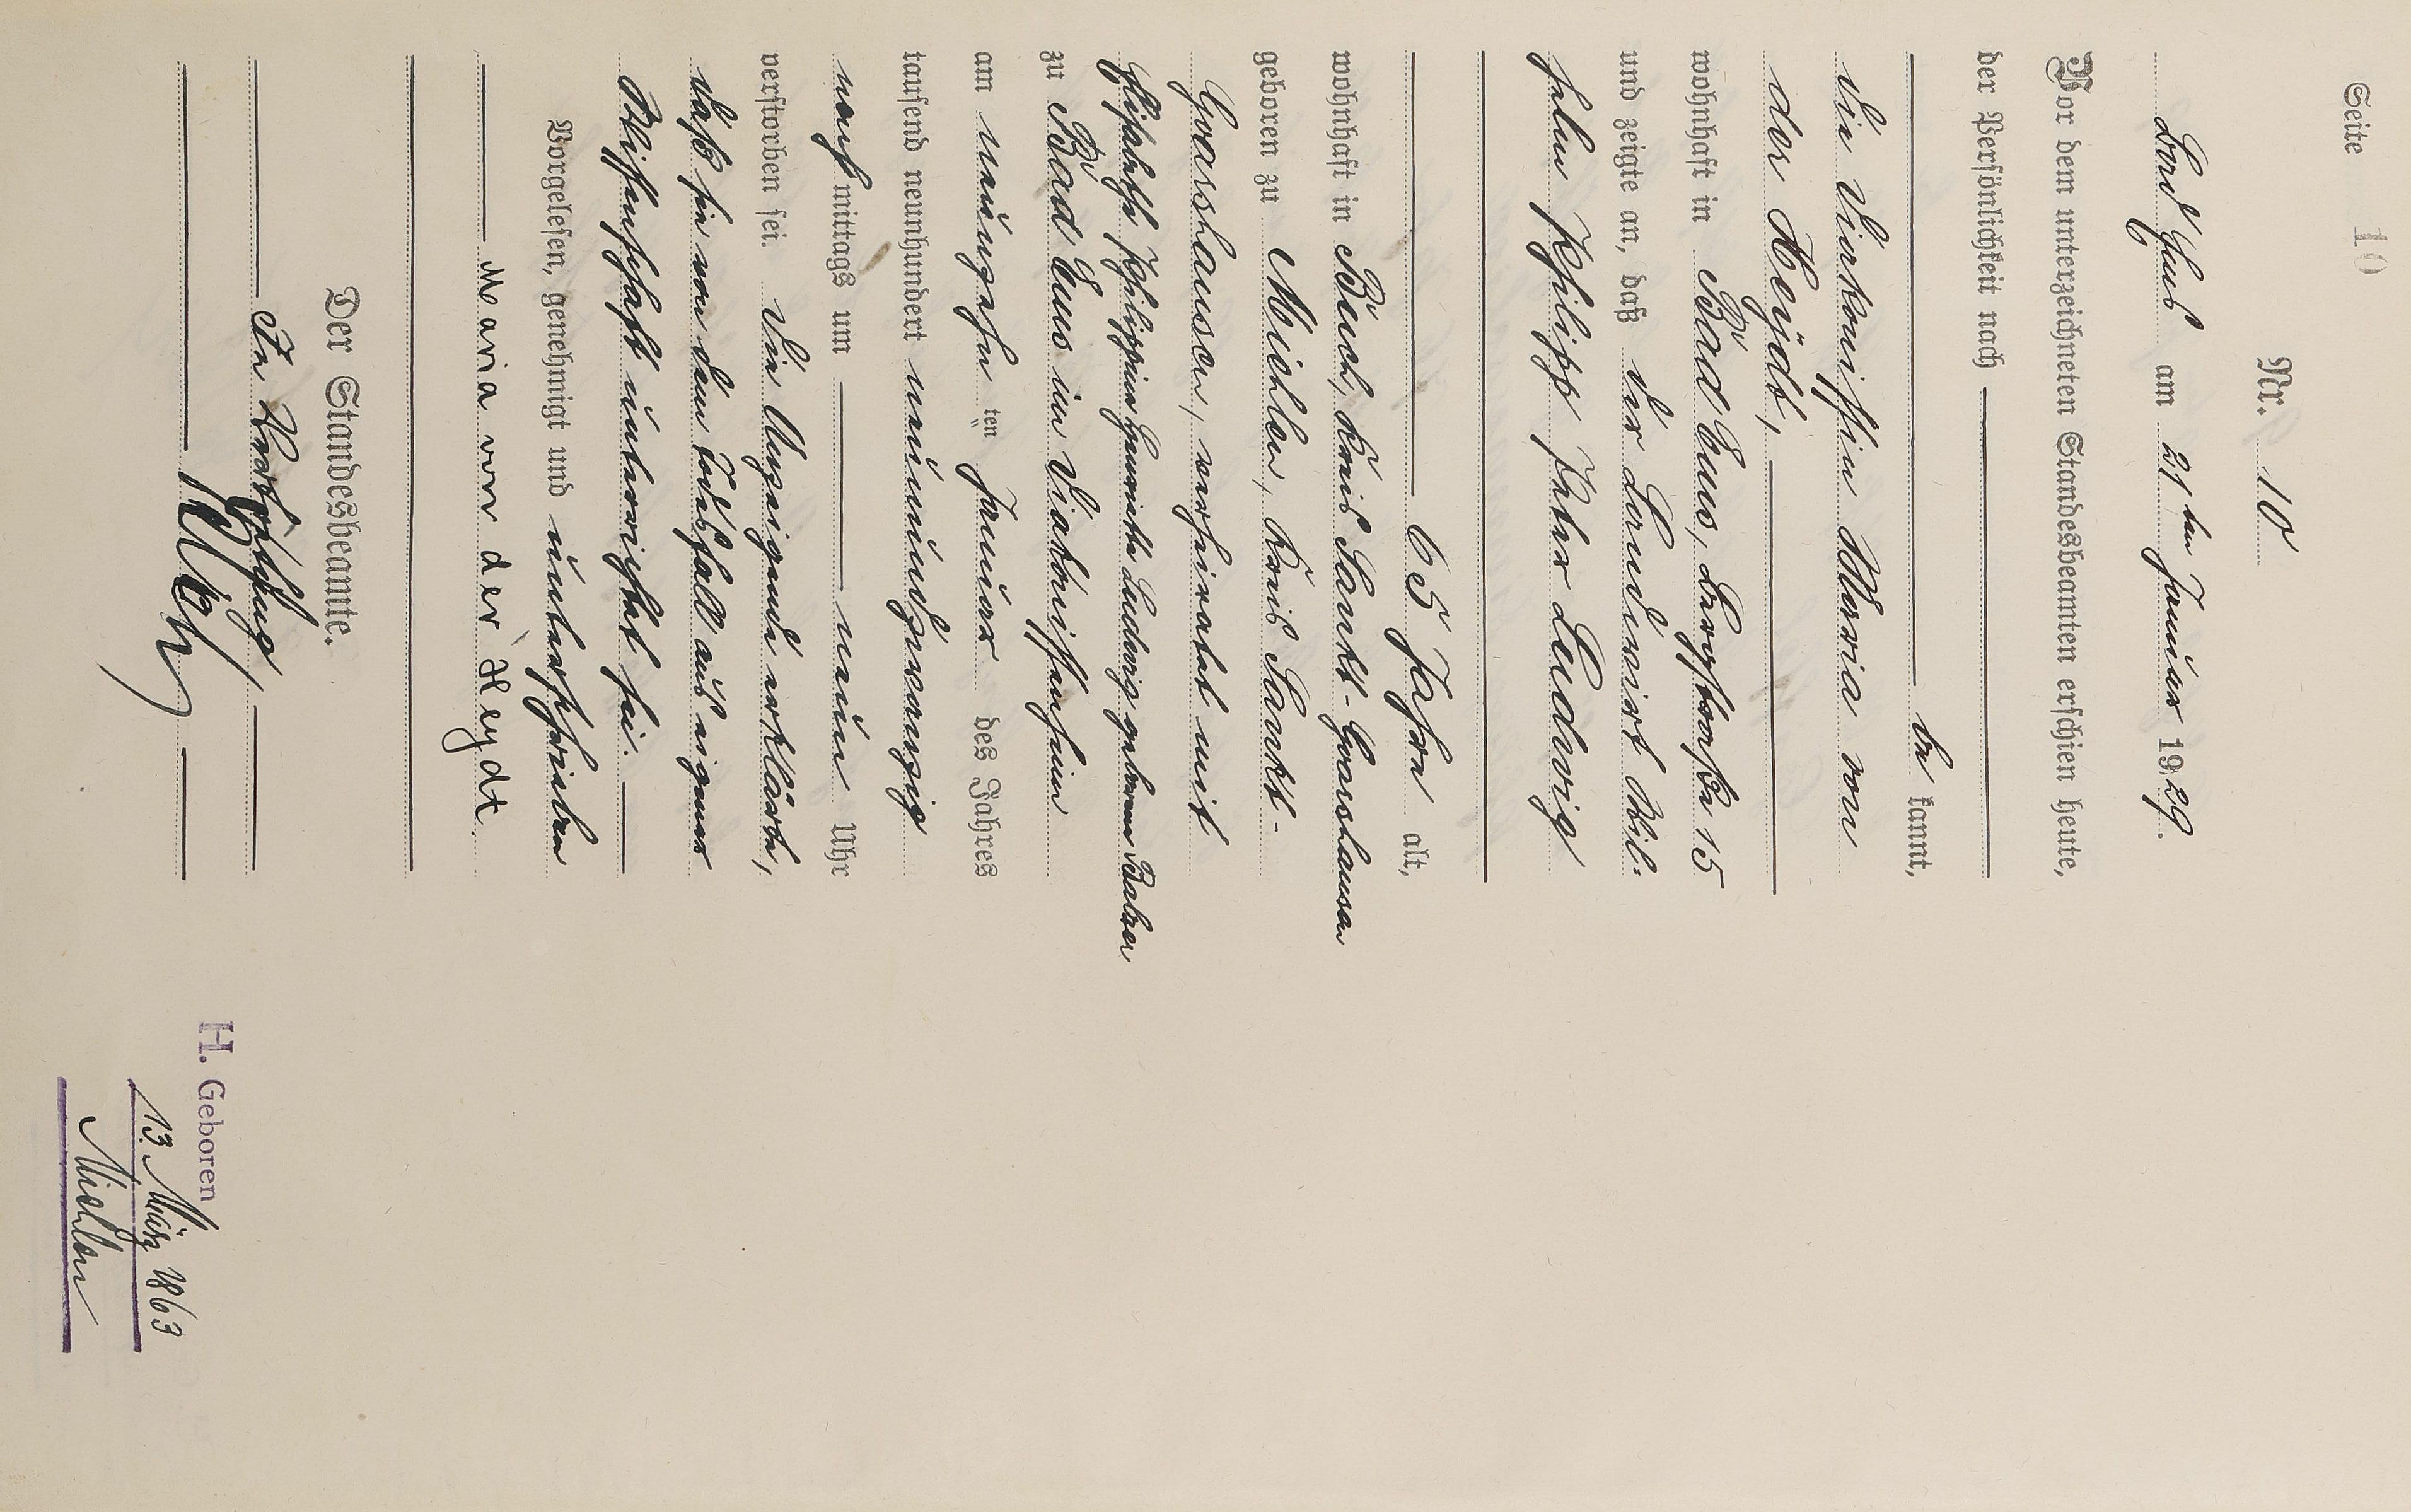 Seite 10
Nr. 10
Bad Ems am 21ten Januar 1929.
Vor dem unterzeichneten Standesbeamten erschien heute,
der Persönlichkeit nach
be kannt,
die Diakonissin Maria von
der Heydt,
wohnhaft in Bad Ems, Bergstraße 15
und zeigte an, daß der Landwirt Wil-
helm Philipp Peter Ludwig
65 Jahre alt,
wohnhaft in Buch, Kreis Sankt-Goarshausen
geboren zu Miehlen, Kreis Sankt-
Goarshausen, verheiratet mit
Elisabethe Philippine Henriette Ludwig geborene Balzer
zu Bad Ems im Diakonissenheim
am neunzehn ten Januar des Jahres
tausend neunhundert neunundzwanzig
nach mittags um neun Uhr
verstorben sei. Die Anzeigende erklärte,
daß sie von dem Todesfall aus eigener
Wissenschaft unterrichtet sei.
Vorgelesen, genehmigt und unterschrieben
Maria von der Heydt.
Der Standesbeamte.
In Vertretung
H. Geboren
13. März 1863
Miehlen